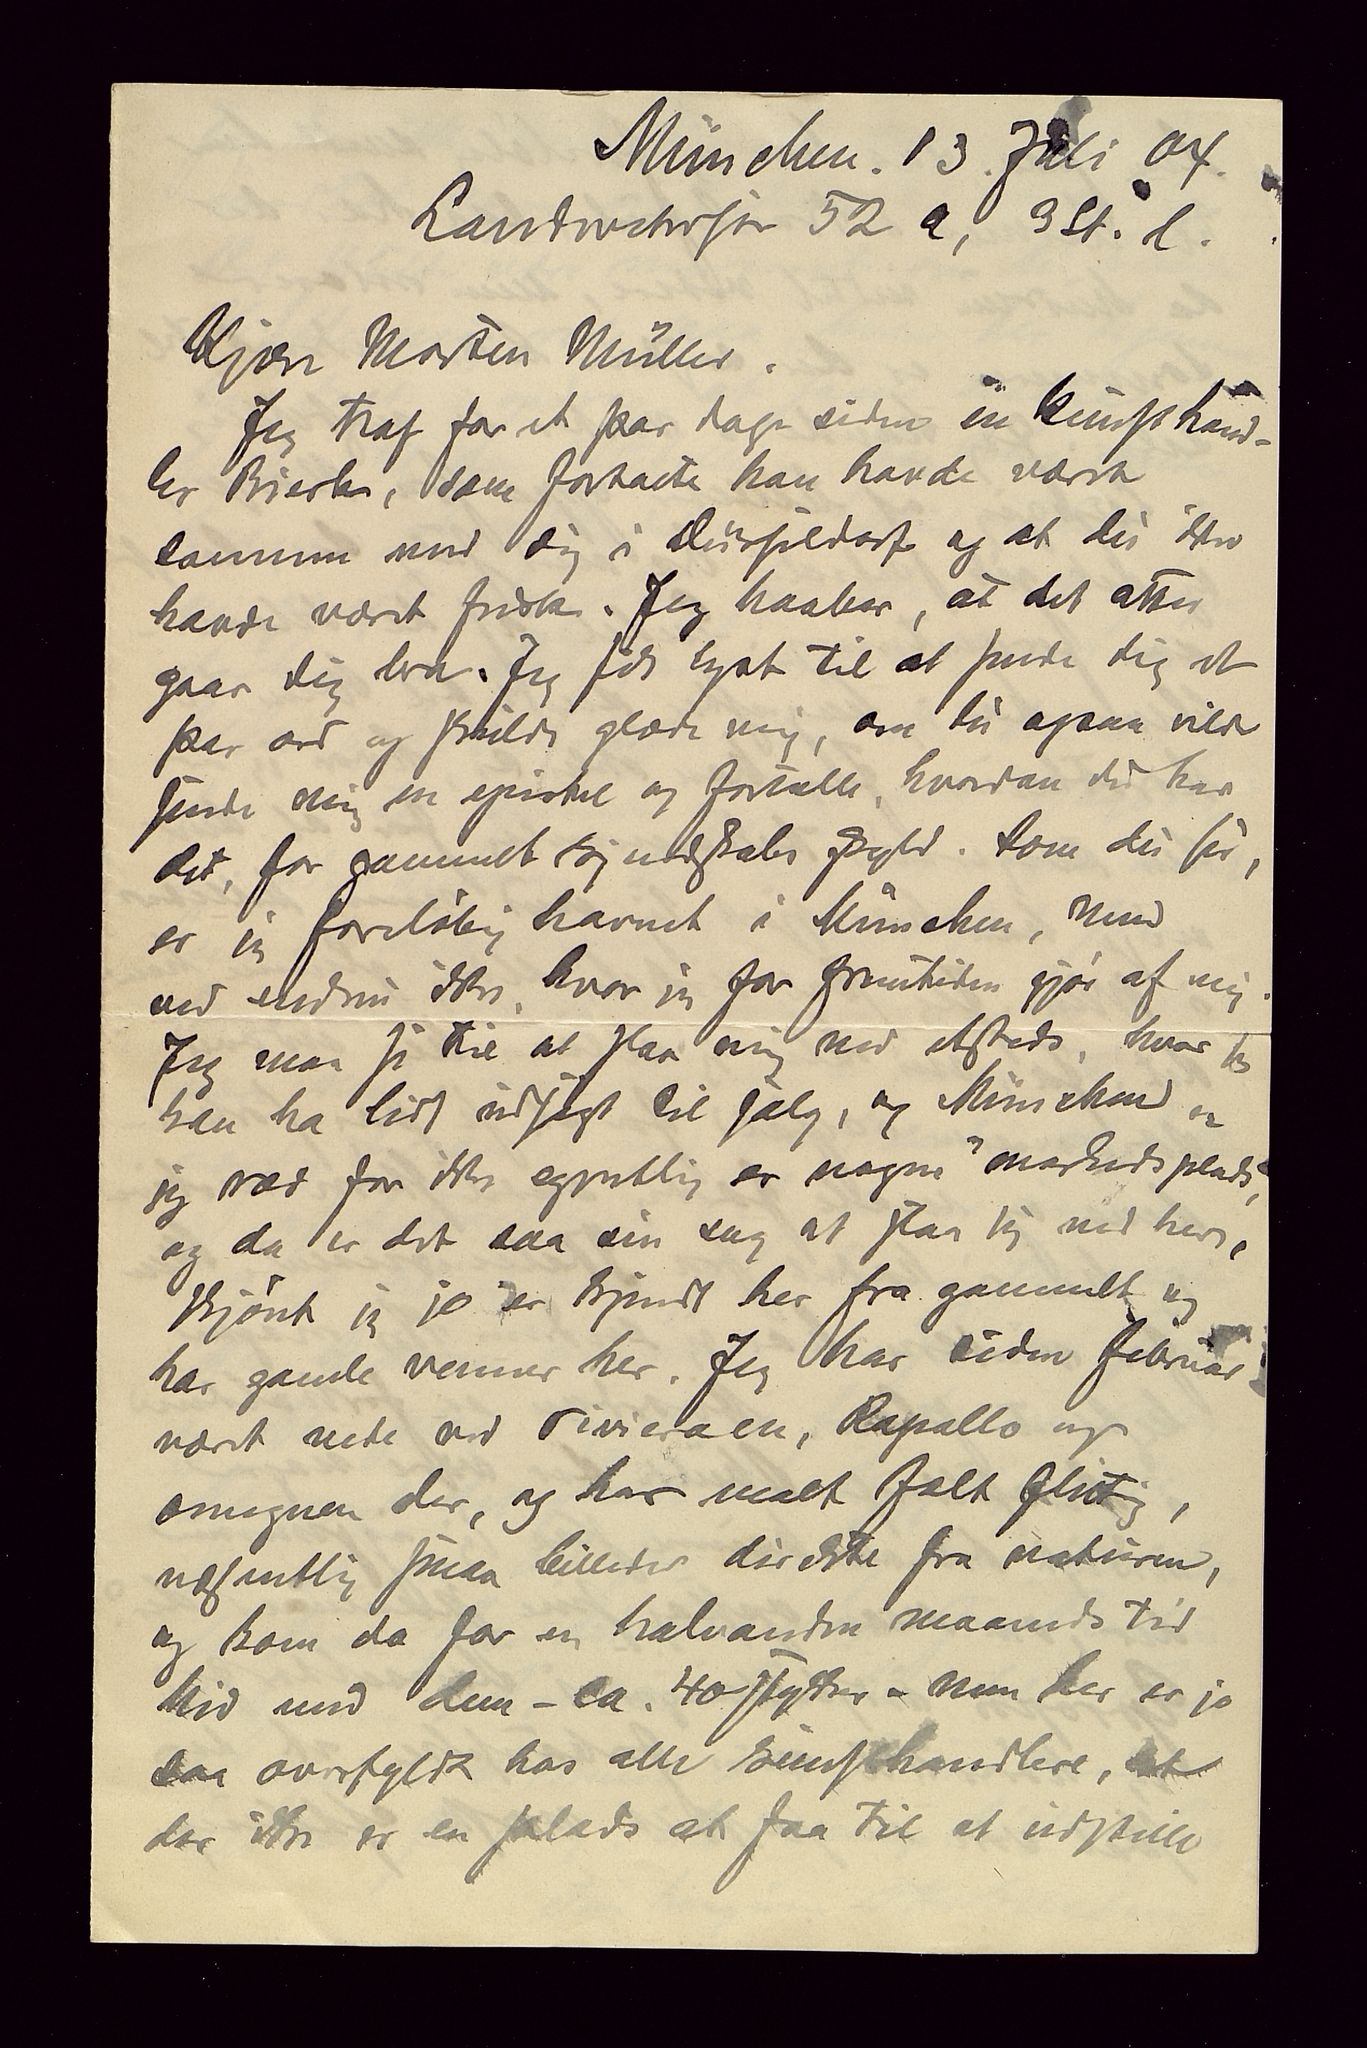 München. 13. Juli 04.
Landwehrstr 52 a, 3 St. l.
Kjære Morten Müller.
Jeg traf for et par dage siden en kunsthand-
ler Bierke, som fortalte han havde været
sammen med dig i Düsseldorf og at du ikke
havde været frisk. Jeg haaber, at det atter
gaar dig bra. Jeg fik lyst til at sende dig et
par ord og skulde glæde mig, om du ogsaa vilde
sende mig en epistel og fortælle, hvordan du har
det, for gammelt kjendskabs skyld. Som du ser,
er jeg foreløbig havnet i München, men
ved endnu ikke, hvor jeg for fremtiden gjør af mig.
Jeg maa se til at slaa mig ned etsteds, hvor jeg
kan ha lidt udsigt til salg, og München er
jeg ræd for ikke egentlig er nogen "markedsplads",
og da er det saa sin sag at slaa sig ned her,
skjønt jeg jo er kjendt her fra gammelt og
har gamle venner her. Jeg har siden februar
været nede ved rivieraen, Rapallo og
omegnen der, og har malt falt flittig,
væsentlig smaa billeder direkte fra naturen,
og kom da for en halvanden maaneds tid
hid med dem – ca. 40 stykker – men her er jo
saa overfyldt hos alle kunsthandlere, at
der ikke er en plads at faa til at udstille